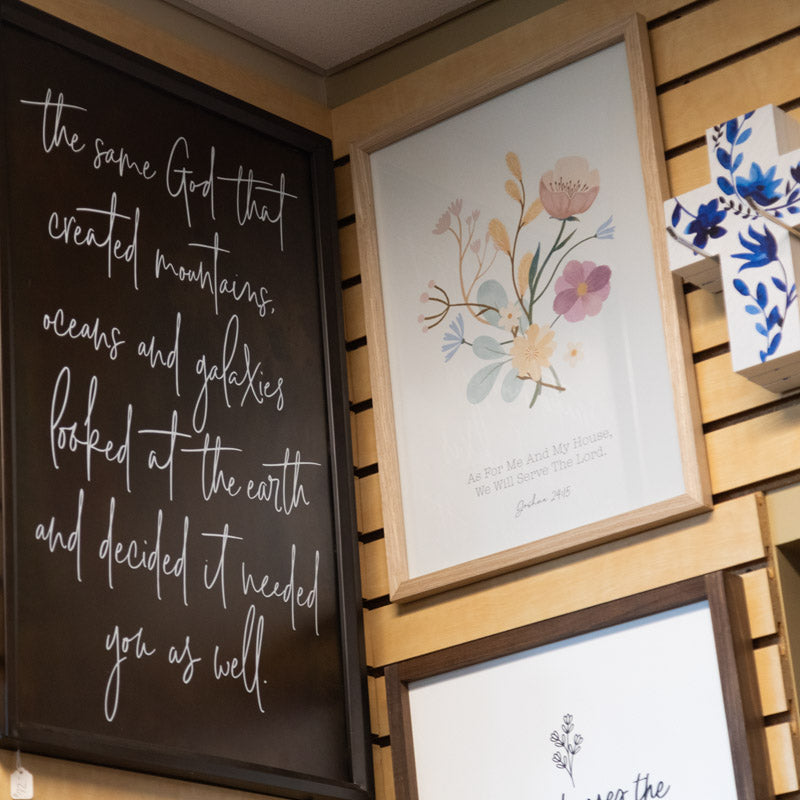 the same God that
created mountains,
oceans and galaxies
looked at the earth
and decided it needed
you as well.
As For Me And My House,
We Will Serve The Lord.
Joshua 24:15
the